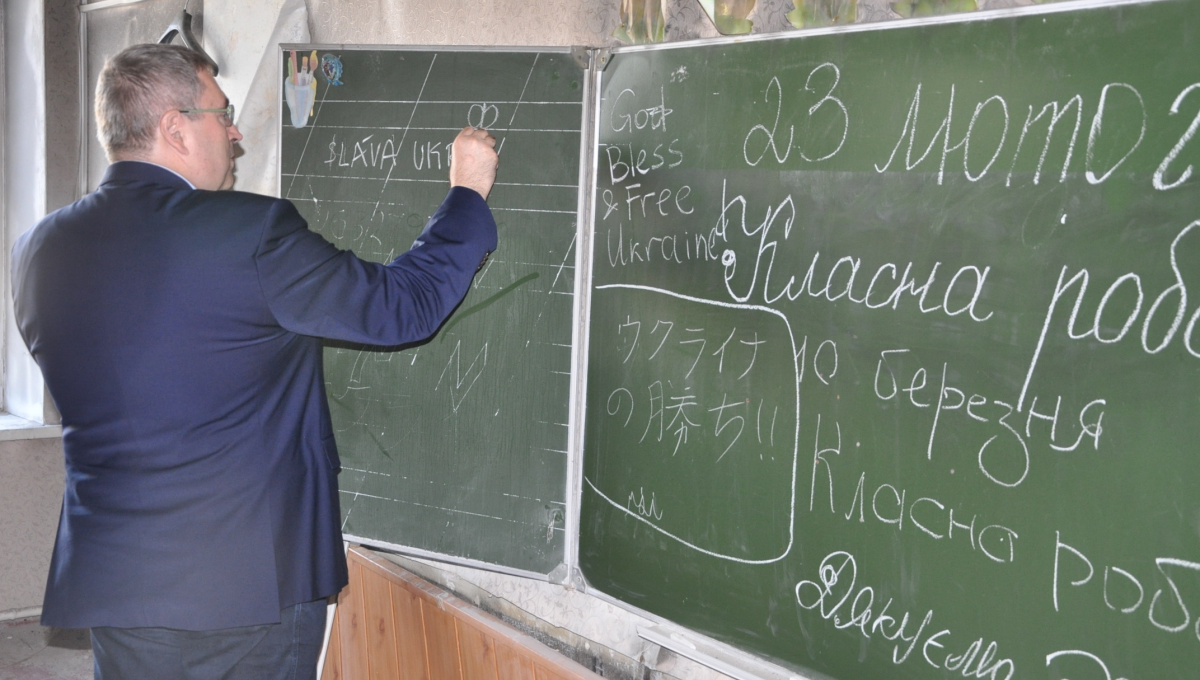 SLAVA UKR
God
Bless
& Free
Ukraine
ウクライナ
の勝ち!!
23 лютог
Класна робо
10 березня
Класна роб
Дякуємо